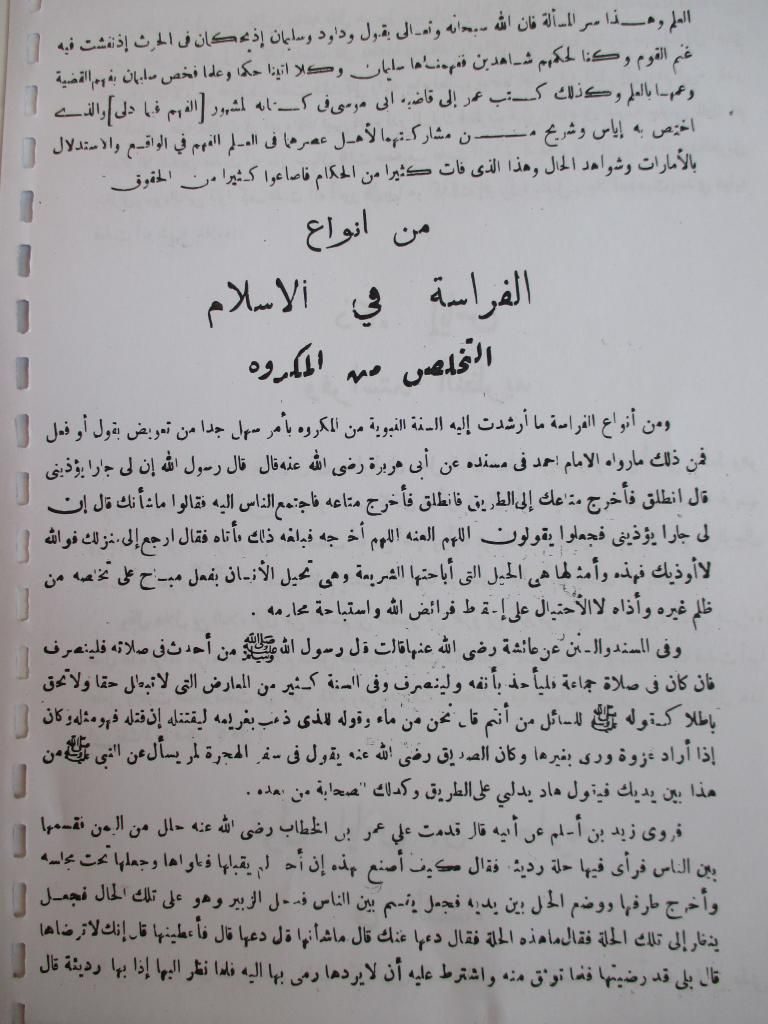 العلم وهذا سر المسألة فان الله سبحانه وتعالى يقول وداود وسليمان إذ يحكمان فى الحرث إذ نفشت فيه
غنم القوم وكنا لحكمهم شاهدين ففهمناها سليمان وكلا اتينا حكما وعلما فخص سليمان بفهم القضية
وعمهما بالعلم وكذلك كتب عمر إلى قاضيه ابى موسى فى كتابه المشهور [الفهم فيما دلى] والذى
اختص به إياس وشريح من مشاركتهما لأهل عصرهما فى العلم الفهم في الواقع والاستدلال
بالأمارات وشواهد الحال وهذا الذى فات كثيرا من الحكام فاضاعوا كثيرا من الحقوق
من انواع
الفراسة في الاسلام
التخلص من المكروه
ومن أنواع الفراسة ما أرشدت إليه السنة النبوية من المكروه بأمر سهل جدا من تعويض بقول أو فعل
فمن ذلك مارواه الامام احمد فى مسنده عن أبى هريرة رضى الله عنه قال قال رسول الله إن لى جارا يؤذينى
قال انطلق فأخرج متاعك إلى الطريق فانطلق فأخرج متاعه فاجتمع الناس اليه فقالوا ماشأنك قال إن
لى جارا يؤذينى فجعلوا يقولون اللهم العنه اللهم أخرجه فبلغه ذلك فأتاه فقال ارجع إلى منزلك فوالله
لاأوذيك فهذه وأمثالها هى الحيل التى أباحتها الشريعة وهى تحيل الأنسان بفعل مباح على تخلصه من
ظلم غيره وأذاه لاالأحتيال على إسقاط فرائض الله واستباحة محارمه .
وفى المسند والسنن عن عائشة رضى الله عنها قالت قال رسول الله ﷺ من أحدث فى صلاته فلينصرف
فان كان فى صلاة جماعة فليأخذ بأنفه ولينصرف وفى السنة كثير من المعارض التى لاتبطل حقا ولاتحق
باطلا كقوله ﷺ للسائل من أنتم قال نحن من ماء وقوله للذى ذهب بغريمه ليقتله إن قتله فهو مثله وكان
إذا أراد غزوة ورى بغيرها وكان الصديق رضى الله عنه يقول فى سفر الهجرة لمن يسأل عن النبى ﷺ من
هذا بين يديك فيقول هاد يدلنى على الطريق وكذلك الصحابة من بعده .
فروى زيد بن أسلم عن أبيه قال قدمت علي عمر بن الخطاب رضى الله عنه حلل من اليمن فقسمها
بين الناس فرأى فيها حلة رديئة فقال كيف أصنع بهذه إن أحد لم يقبلها فطواها وجعلها تحت مجلسه
وأخرج طرفها ووضع الحلل بين يديه فجعل يقسم بين الناس فدخل الزبير وهو على تلك الحال فجعل
ينظر إلى تلك الحلة فقال ماهذه الحلة فقال دعها عنك قال ماشأنها قال دعها قال فأعطينها قال إنك لاترضاها
قال بلى قد رضيتها فلما توثق منه واشترط عليه أن لايردها رمى بها اليه فلما نظر اليها إذا بها رديئة قال